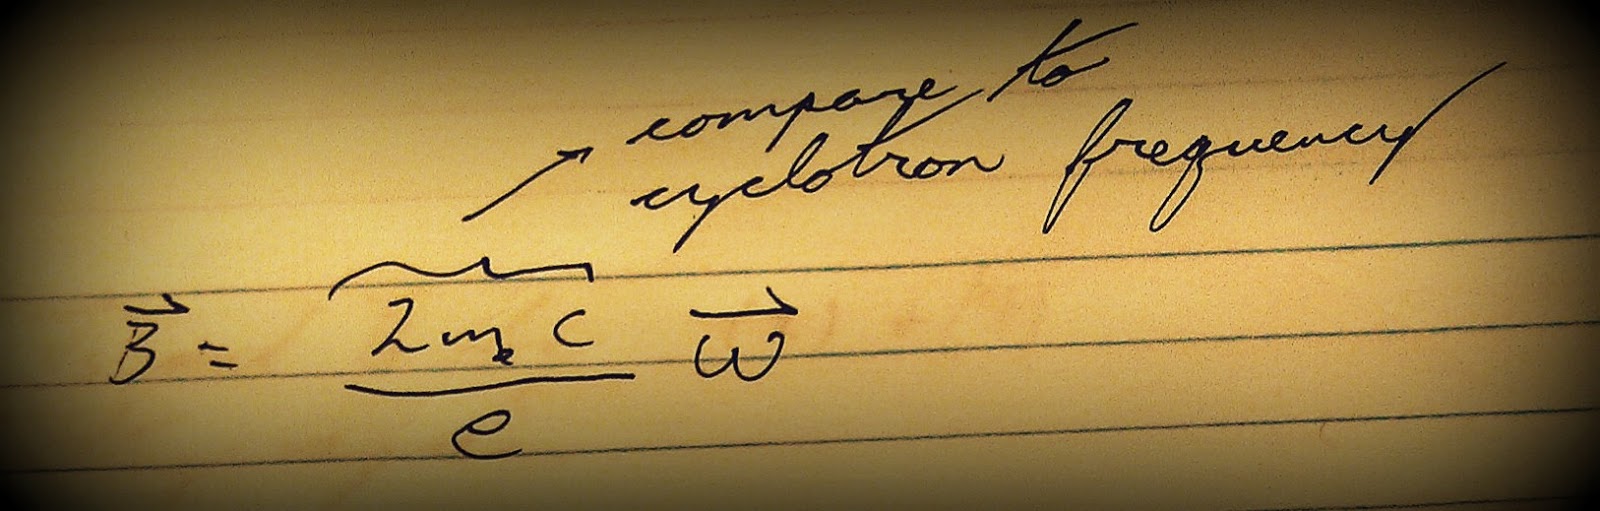 compare to
cyclotron frequency
B⃗ = 2mₑc / e ω⃗